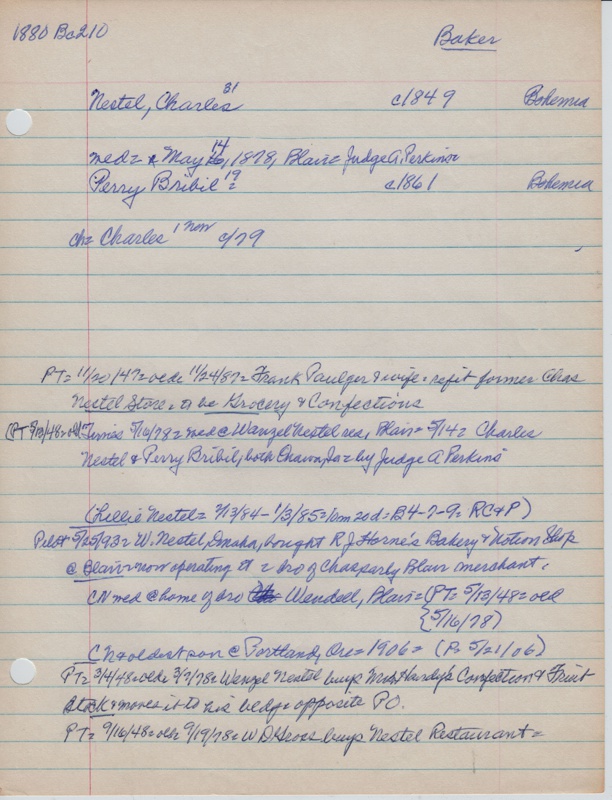 1880 Ba210
Baker
Nestel, Charles 31 c1849 Bohemia
med= May 14, 1878, Blair= Judge A. Perkins=
Perry Bribil 19= c1861 Bohemia
ch= Charles 1 now c/79
PT= 11/20/47= olde 11/24/87= Frank Paulger & wife= refit former Chas
Nestel Store= to be Grocery & Confections
(PT 5/13/48= old) Times 5/16/78= med @ Wenzel Nestel res, Blair= 5/14= Charles
Nestel & Perry Bribil, both Onawa, Ia= by Judge A Perkins
(Lillie Nestel= 2/13/84-1/3/85=10m 20d= B4-7-9= RC&P)
Pilot 5/25/93= W. Nestel, Omaha, bought R J Horne's Bakery & Notion Shop
@ Blair= now operating it = bro of Chas early Blair merchant.
CN med @ home of bro Wendsel, Blair= (PT= 5/13/48= old
5/16/78)
CN & oldest son @ Portland, Ore= 1906= (P= 5/21/06)
PT= 3/4/48= olde 3/7/78= Wenzel Nestel buys Mrs Handy's Confection & Fruit
Stock & moves it to his bldg= opposite PO.
PT= 9/16/48= olde 9/19/78= W D Gross buys Nestel Restaurant=